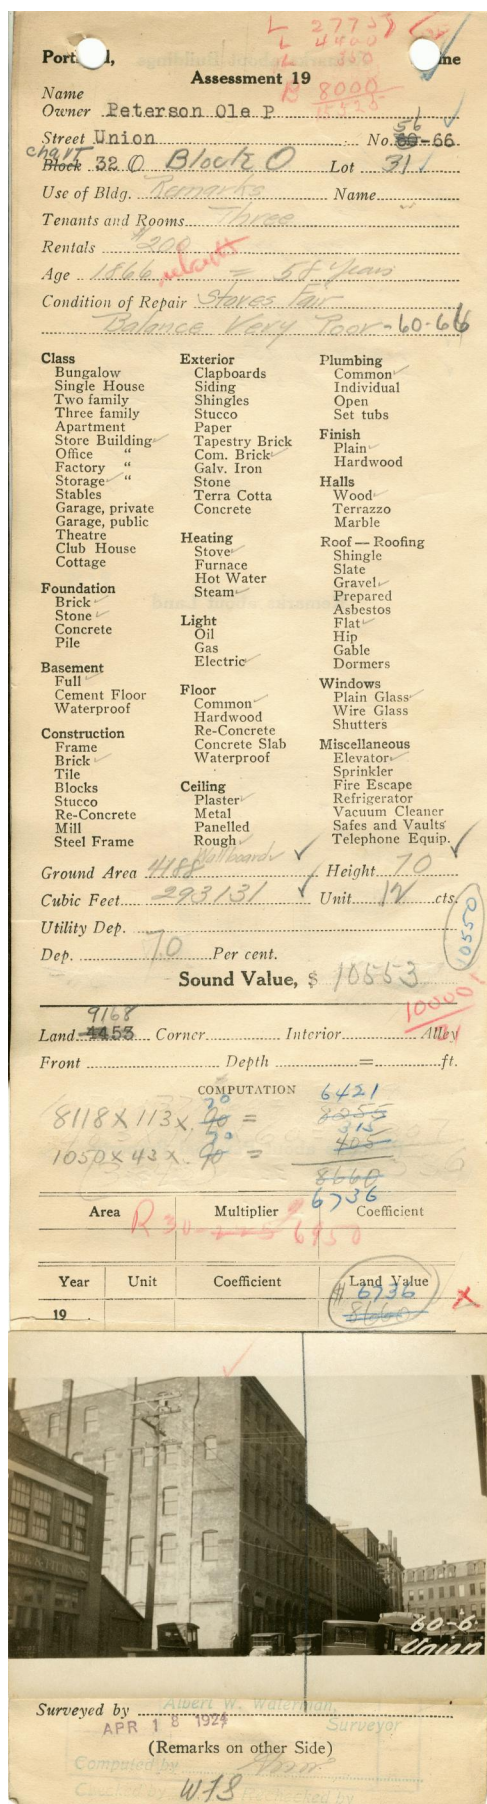 L 2775
L 4400
B 8000
Portland, Maine
Assessment 19
Name
Owner Peterson Ole P
Street Union No. 60-66 56
chart Block 32 O Block O Lot 31
Use of Bldg. Remarks Name
Tenants and Rooms Three
Rentals $200
Age 1866 = 58 Years
Condition of Repair Stores Fair
Balance Very Poor - 60-66
Class
Bungalow
Single House
Two family
Three family
Apartment
Store Building ✓
Office "
Factory "
Storage ✓ "
Stables
Garage, private
Garage, public
Theatre
Club House
Cottage
Foundation
Brick ✓
Stone ✓
Concrete
Pile
Basement
Full ✓
Cement Floor
Waterproof
Construction
Frame
Brick ✓
Tile
Blocks
Stucco
Re-Concrete
Mill
Steel Frame
Exterior
Clapboards
Siding
Shingles
Stucco
Paper
Tapestry Brick
Com. Brick ✓
Galv. Iron
Stone
Terra Cotta
Concrete
Heating
Stove ✓
Furnace
Hot Water
Steam ✓
Light
Oil
Gas
Electric ✓
Floor
Common ✓
Hardwood
Re-Concrete
Concrete Slab
Waterproof
Ceiling
Plaster ✓
Metal
Panelled
Rough ✓
Wallboard ✓
Plumbing
Common ✓
Individual
Open
Set tubs
Finish
Plain ✓
Hardwood
Halls
Wood ✓
Terrazzo
Marble
Roof — Roofing
Shingle
Slate
Gravel ✓
Prepared
Asbestos
Flat ✓
Hip
Gable
Dormers
Windows
Plain Glass ✓
Wire Glass
Shutters
Miscellaneous
Elevator ✓
Sprinkler
Fire Escape
Refrigerator
Vacuum Cleaner
Safes and Vaults
Telephone Equip.
Ground Area 4188 Height 70
Cubic Feet 293131 Unit 12 cts.
Utility Dep.
10550
Dep. 70 Per cent.
Sound Value, $ 10553
10000
9168
Land 4453 Corner Interior Alley
Front Depth = ft.
COMPUTATION 6421
8118 X 113 X .90 70 = 8255
315
1050 X 43 X .90 70 = 405
8660
6736
Area Multiplier Coefficient
R 6950
Year Unit Coefficient Land Value
$ 6736
19 8660
60-6
Union
Surveyed by Albert W. Waterman,
Surveyor
APR 18 192
(Remarks on other Side)
Computed by
WIS